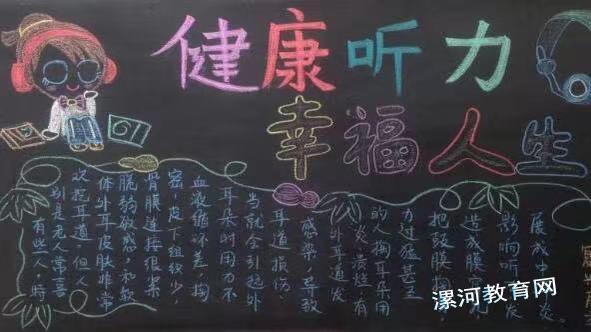 健康听力
幸福人生
有些人,特
别是老人常喜
欢挖耳道,但人
体外耳皮肤非常
脆弱敏感,和软
骨膜连接很紧
密,皮下组织少,
血液循环差,掏
耳朵时用力不
当就会引起外
耳道损伤、
感染,导致
外耳道发
炎溃烂有
的人掏耳朵用
力过猛甚至
把鼓膜掏
造成膜穿
影响听
展成中
漯河教育网